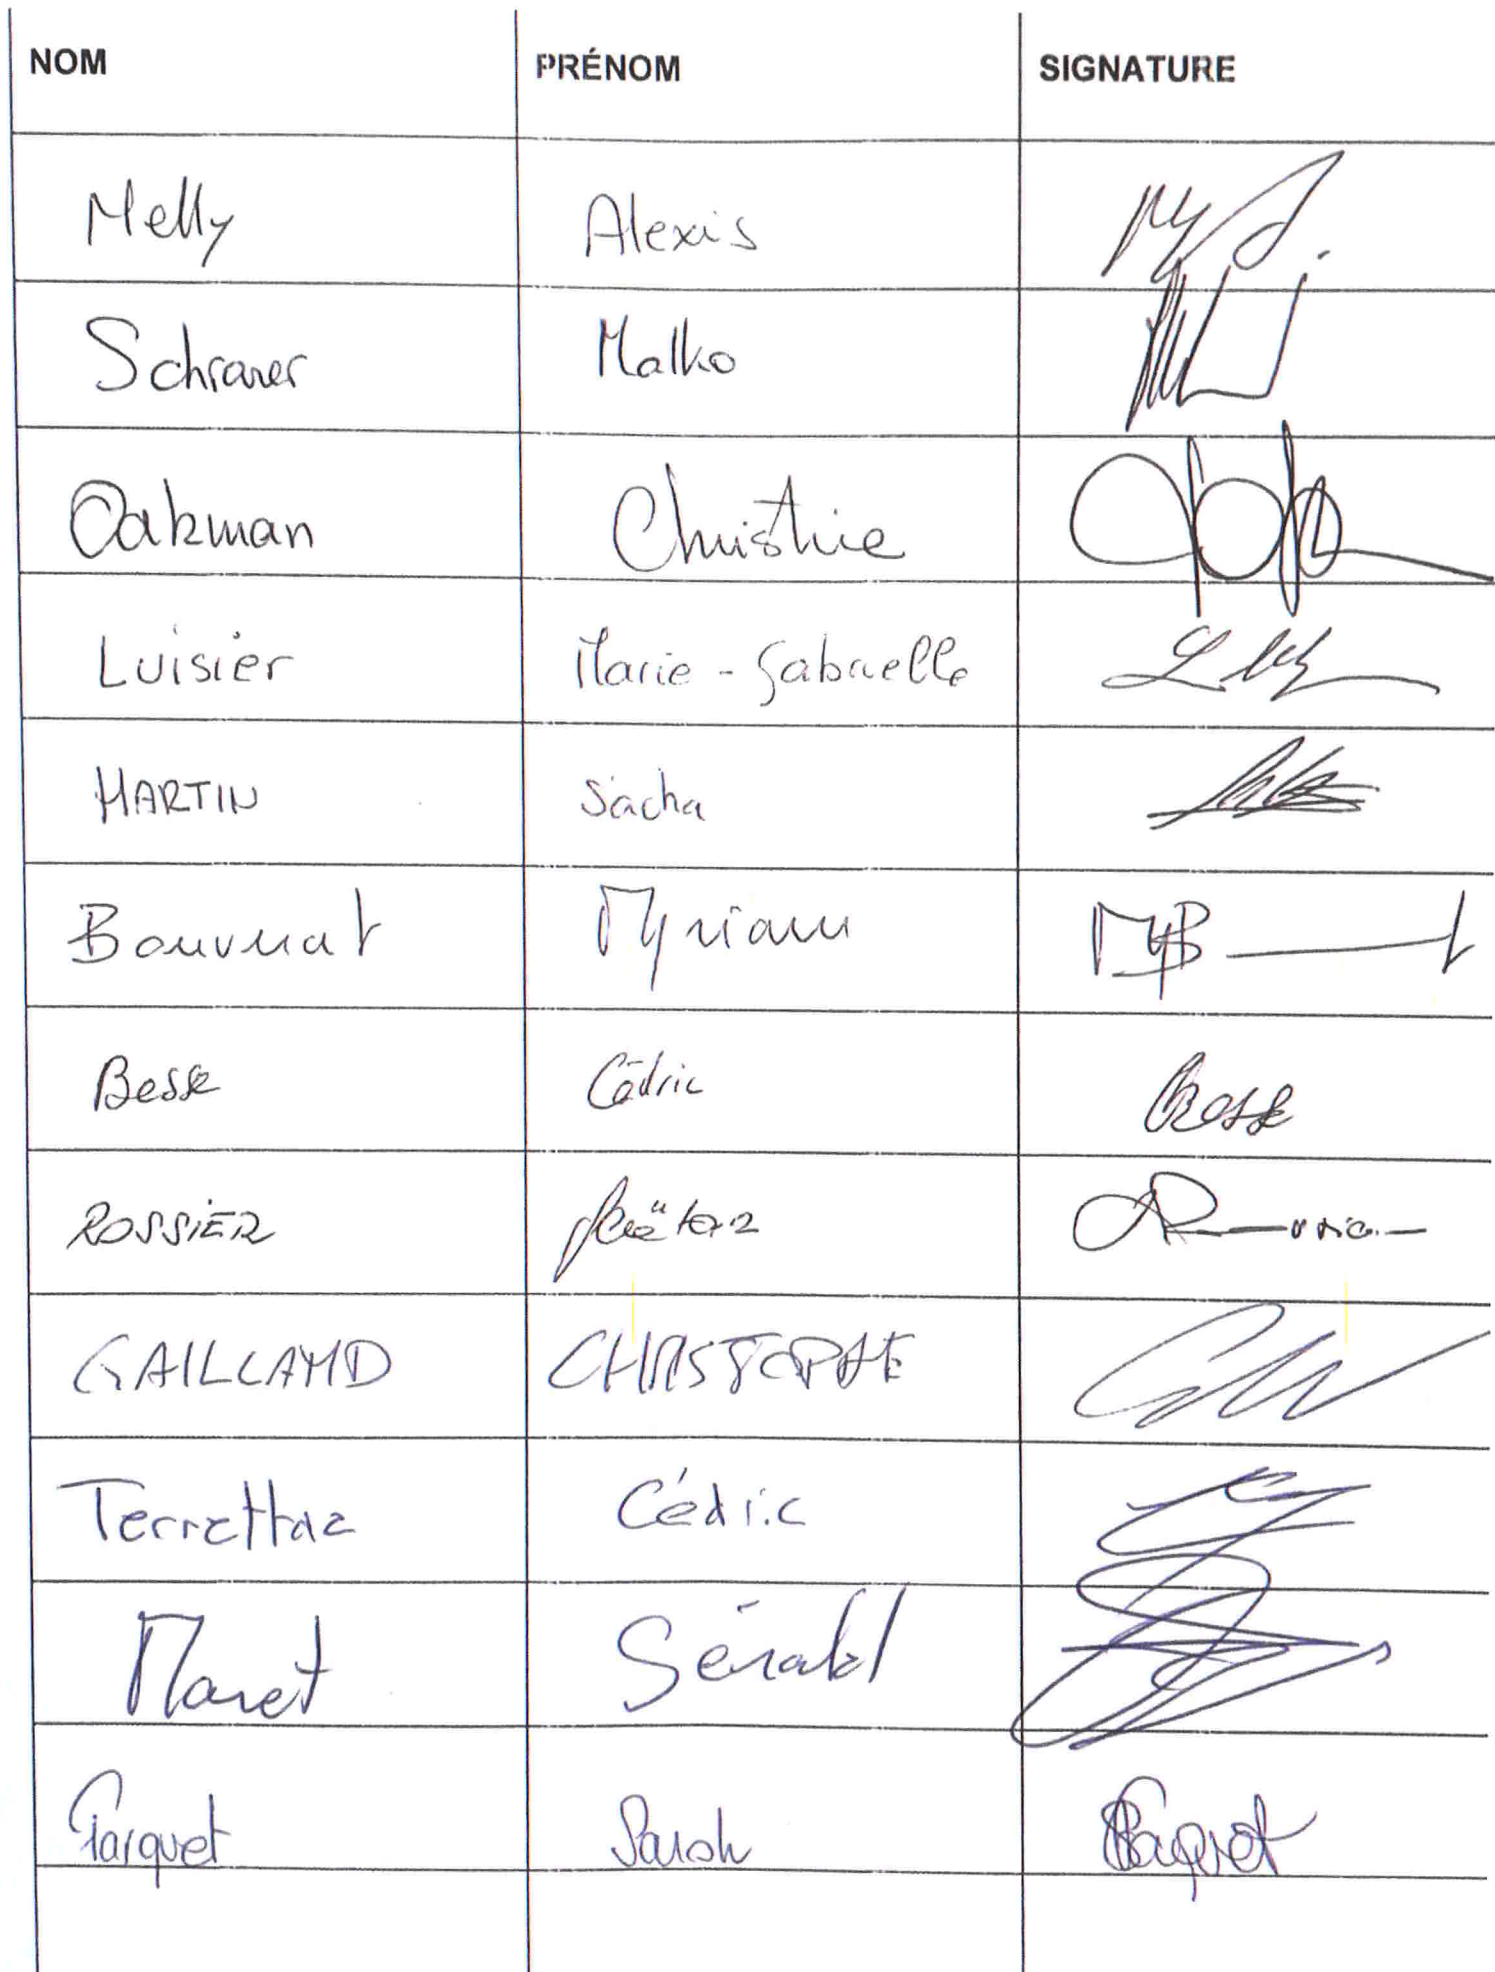 NOM PRÉNOM SIGNATURE
Melly Alexis
Schrarer Malko
Oakman Christine
Luisier Marie-Gabrielle
MARTIN Sacha
Bouvernat Myriam
Besse Cédric Besse
ROSSIER
GAILLARD CHRISTOPHE
Terrettaz Cédric
Maret Gérald
Farquet Sarah Farquet